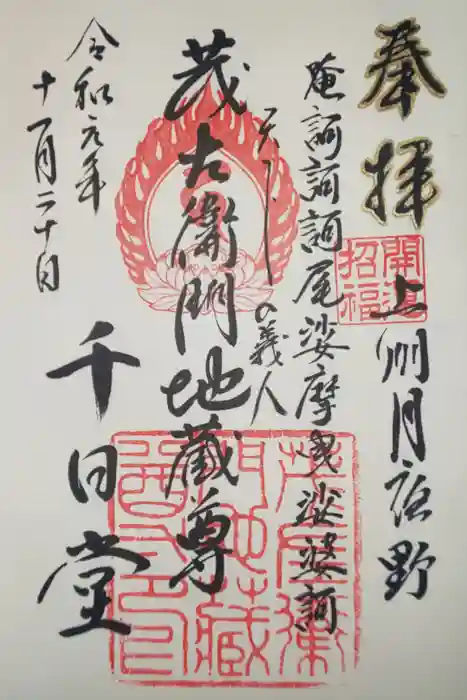 奉拝
上州月夜野
開運
招福
唵訶訶訶尾娑摩曳娑婆訶
天下一の義人
茂左衛門地蔵尊
令和元年
十一月二十日
千日堂